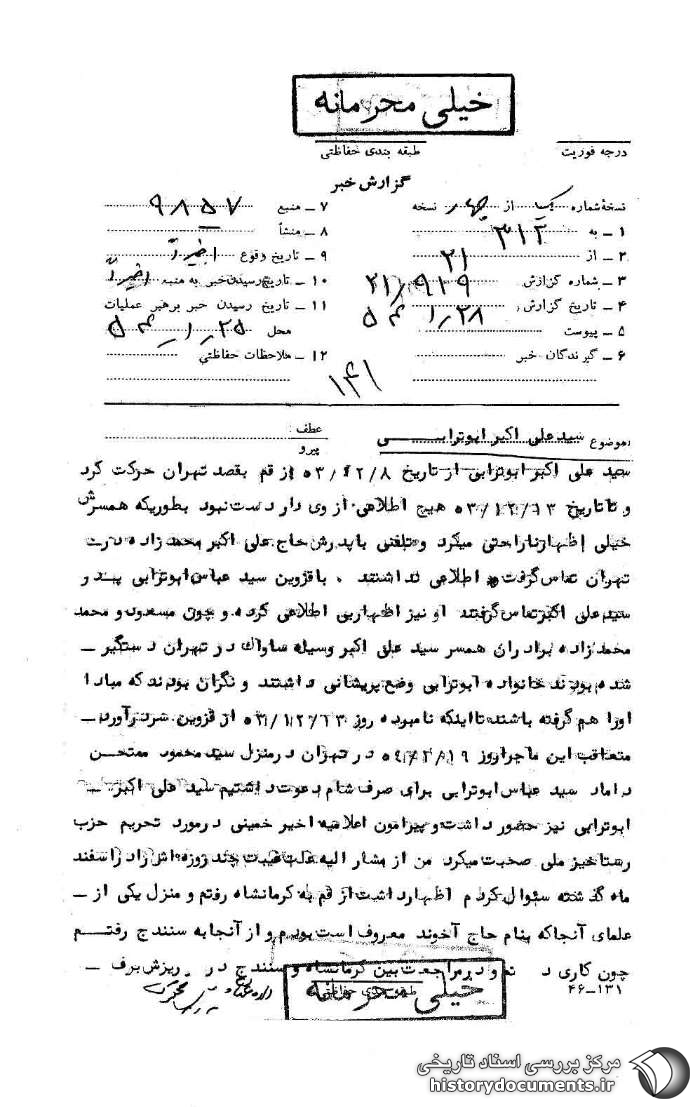 خیلی محرمانه
درجه فوریت
طبقه بندی حفاظتی
گزارش خبر
نسخهٔ شماره یک از چهار نسخه
۷ ـ منبع ۹۸۵۷
۱ ـ به ۳۱۲
۸ ـ منشأ
۲ ـ از ۲۱
۹ ـ تاریخ وقوع اخیراً
۳ ـ شماره گزارش ۲۱/۹۱۹
۱۰ ـ تاریخ رسیدن خبر به منبع اخیراً
۴ ـ تاریخ گزارش ۵۴/۱/۲۸
۱۱ ـ تاریخ رسیدن خبر برهبر عملیات
محل ۵۴/۱/۲۵
۵ ـ پیوست
۶ ـ گیرندگان خبر
۱۲ ـ ملاحظات حفاظتی
۱۴۱
موضوع سید علی اکبر ابوترابی
عطف :
پیرو
سید علی اکبر ابوترابی از تاریخ ۵۳/۱۲/۸ از قم بقصد تهران حرکت کرد
و تا تاریخ ۵۳/۱۲/۱۳ هیچ اطلاعی از وی در دست نبود بطوریکه همسرش
خیلی اظهار ناراحتی میکرد و تلفنی با پدرش حاج علی اکبر محمد زاده در
تهران تماس گرفت اطلاعی نداشتند . با قزوین سید عباس ابوترابی پدر
سید علی اکبر تماس گرفتند او نیز اظهار بی اطلاعی کرده و چون مسعود و محمد
محمد زاده برادران همسر سید علی اکبر وسیله ساواک در تهران دستگیر ـ
شده بودند خانواده ابوترابی وضع پریشانی داشتند و نگران بودند که مبادا
اورا هم گرفته باشند تا اینکه نامبرده روز ۵۳/۱۲/۱۳ از قزوین سر در آورد ـ
متعاقب این ماجرا روز ۵۴/۲/۱۹ در تهران در منزل سید محمود ممتحن
داماد سید عباس ابوترابی برای صرف شام دعوت داشتیم سید علی اکبر ـ
ابوترابی نیز حضور داشت و پیرامون اعلامیه اخیر خمینی در مورد تحریم حزب
رستاخیز ملی صحبت میکرد من از مشار الیه علت غیبت چند روزه اش را در اسفند
ماه گذشته سئوال کردم اظهار داشت از قم به کرمانشاه رفتم و منزل یکی از ـ
علمای آنجا که بنام حاج آخوند معروف است بودم و از آنجا به سنندج رفتم
چون کاری نبود در مراجعت بین کرمانشاه و سنندج در ریزش برف ـ
خیلی محرمانه
طبقه بندی حفاظتی
۴۶-۱۳۱
مرکز بررسی اسناد تاریخی
historydocuments.ir